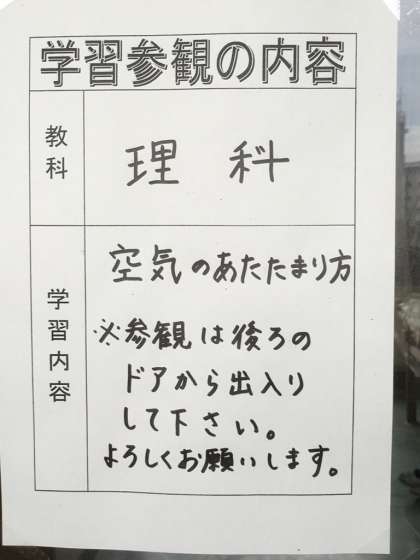 学習参観の内容
教科
理科
学習内容
空気のあたたまり方
※参観は後ろの
ドアから出入り
して下さい。
よろしくお願いします。